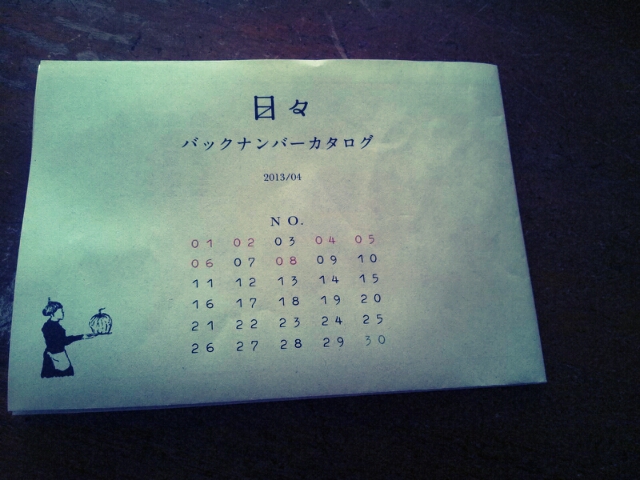 日々
バックナンバーカタログ
2013/04
NO.
01 02 03 04 05
06 07 08 09 10
11 12 13 14 15
16 17 18 19 20
21 22 23 24 25
26 27 28 29 30